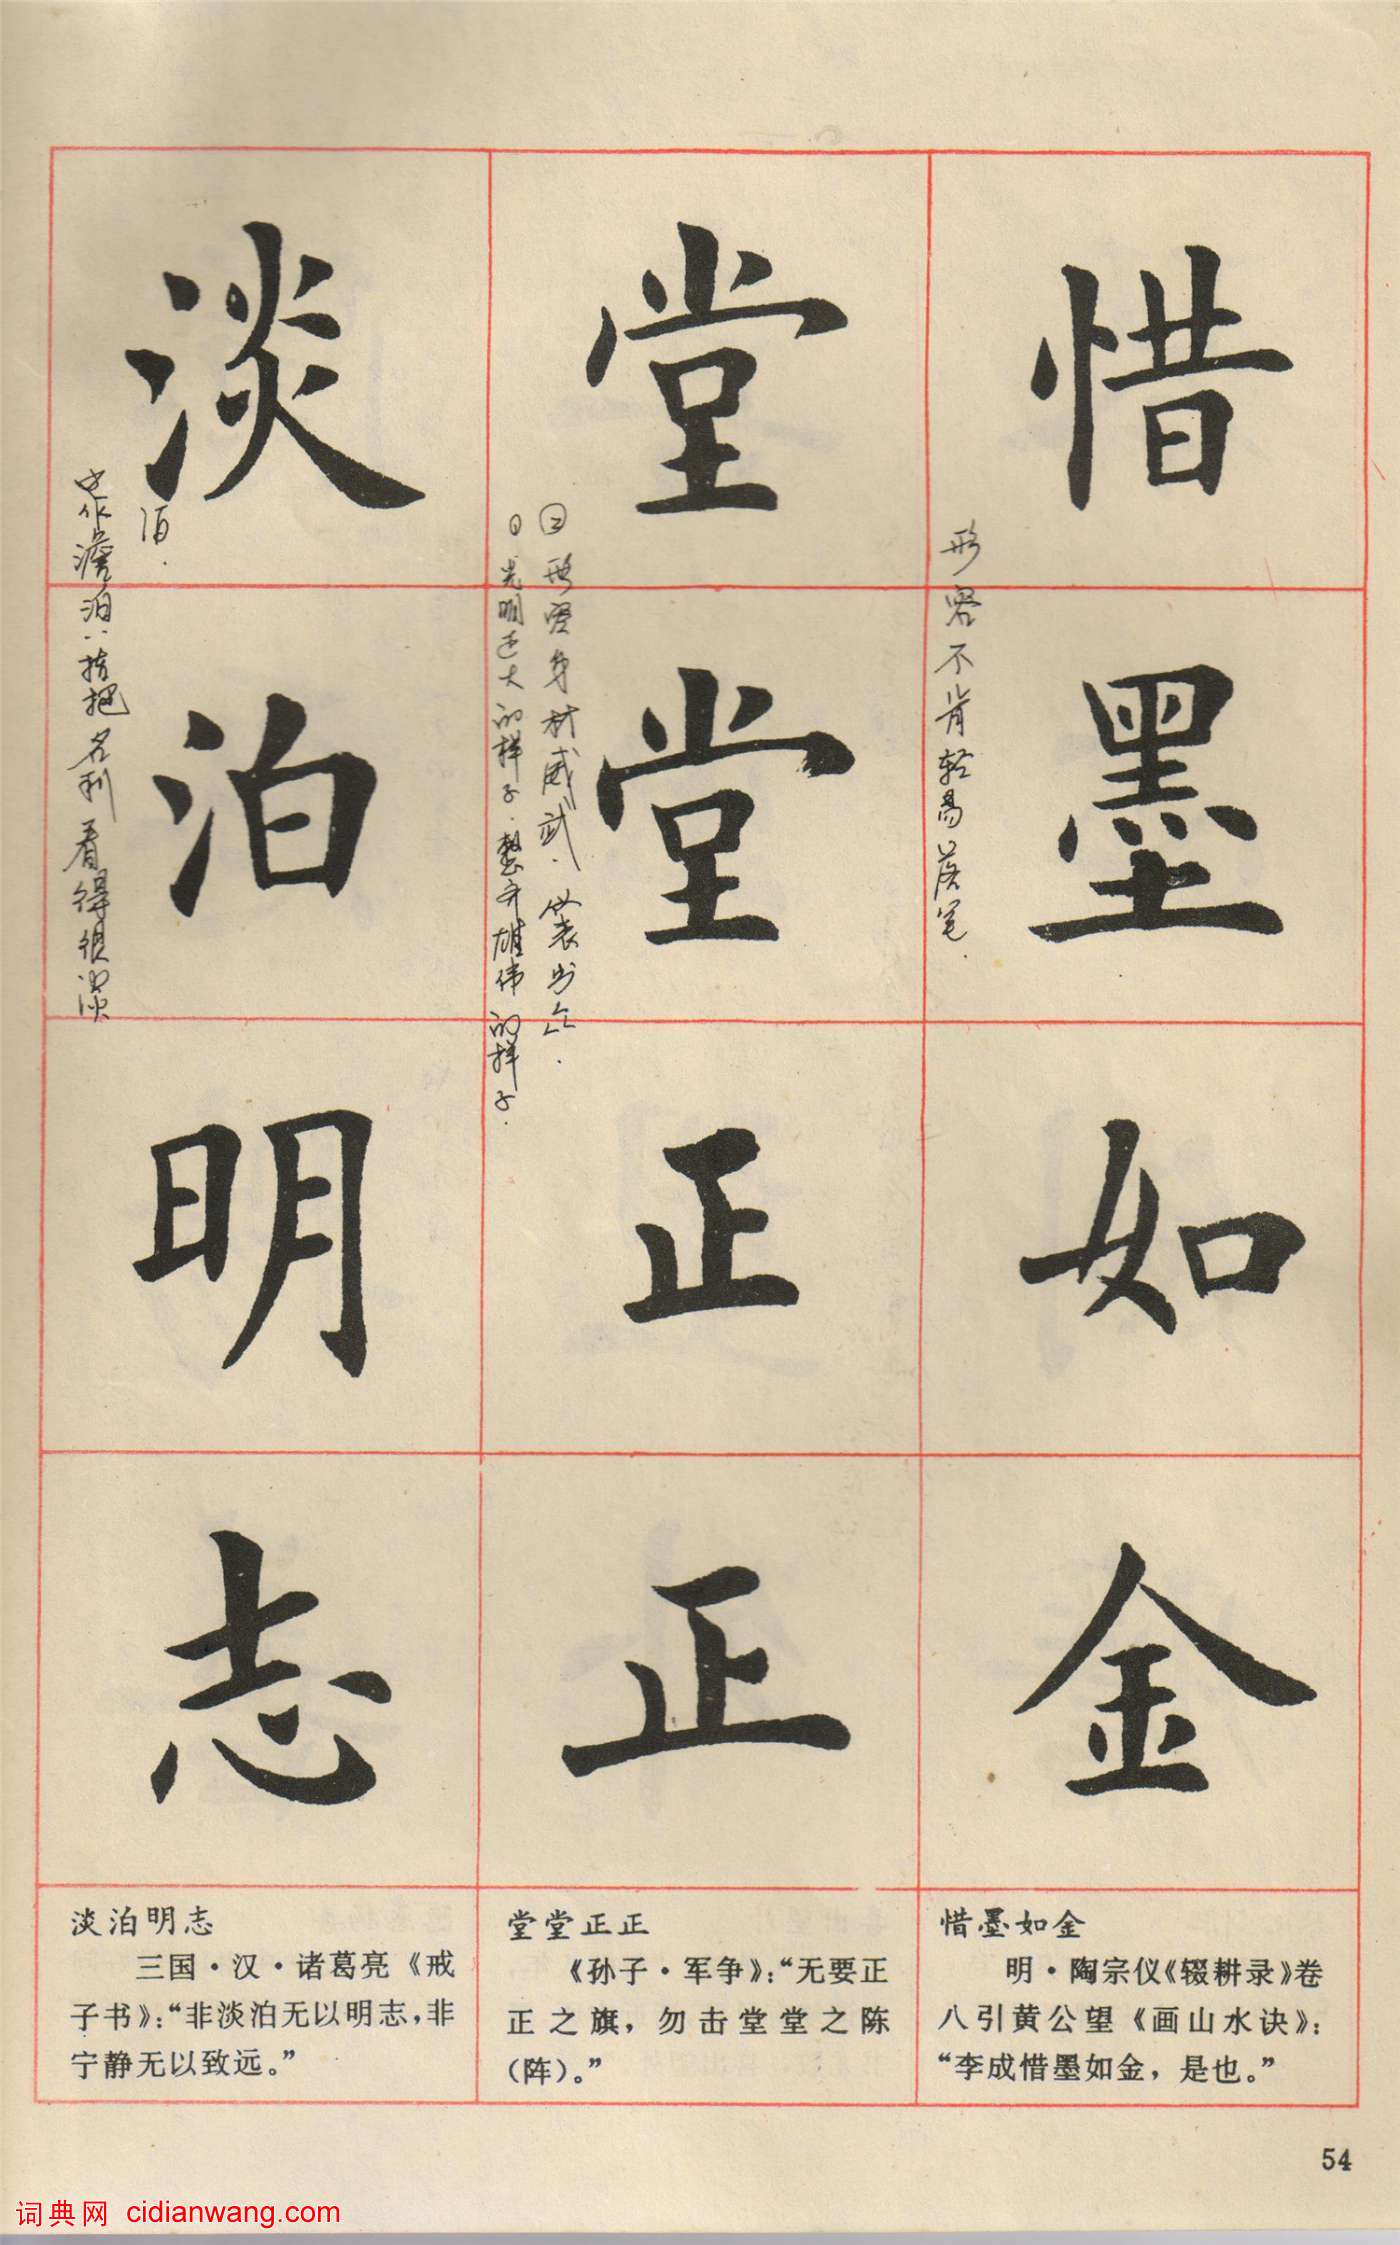 惜墨如金
形容不肯轻易落笔.
堂堂正正
② 形容身材威武. 仪表出众.
① 光明正大的样子. 整齐雄伟的样子.
淡泊明志
泊.
也作澹泊.. 指把名利看得很淡
惜墨如金
明·陶宗仪《辍耕录》卷
八引黄公望《画山水诀》：
“李成惜墨如金，是也。”
堂堂正正
《孙子·军争》：“无要正
正之旗，勿击堂堂之陈
（阵）。”
淡泊明志
三国·汉·诸葛亮《戒
子书》：“非淡泊无以明志，非
宁静无以致远。”
54
词典网 cidianwang.com